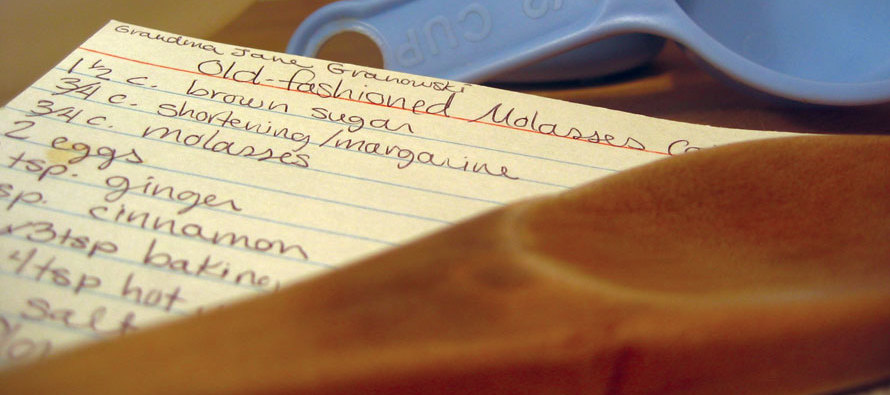 1/2 CUP
Grandma Jane Granowski
Old-fashioned Molasses
1 1/2 c. brown sugar
3/4 c. shortening/margarine
3/4 c. molasses
2 eggs
tsp. ginger
cinnamon
3tsp
4tsp hot
salt